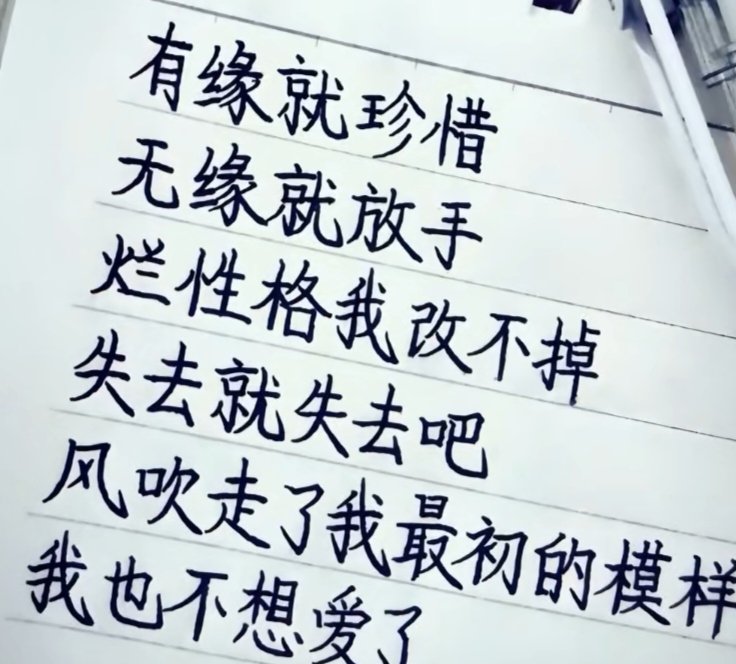 有缘就珍惜
无缘就放手
烂性格我改不掉
失去就失去吧
风吹走了我最初的模样
我也不想爱了